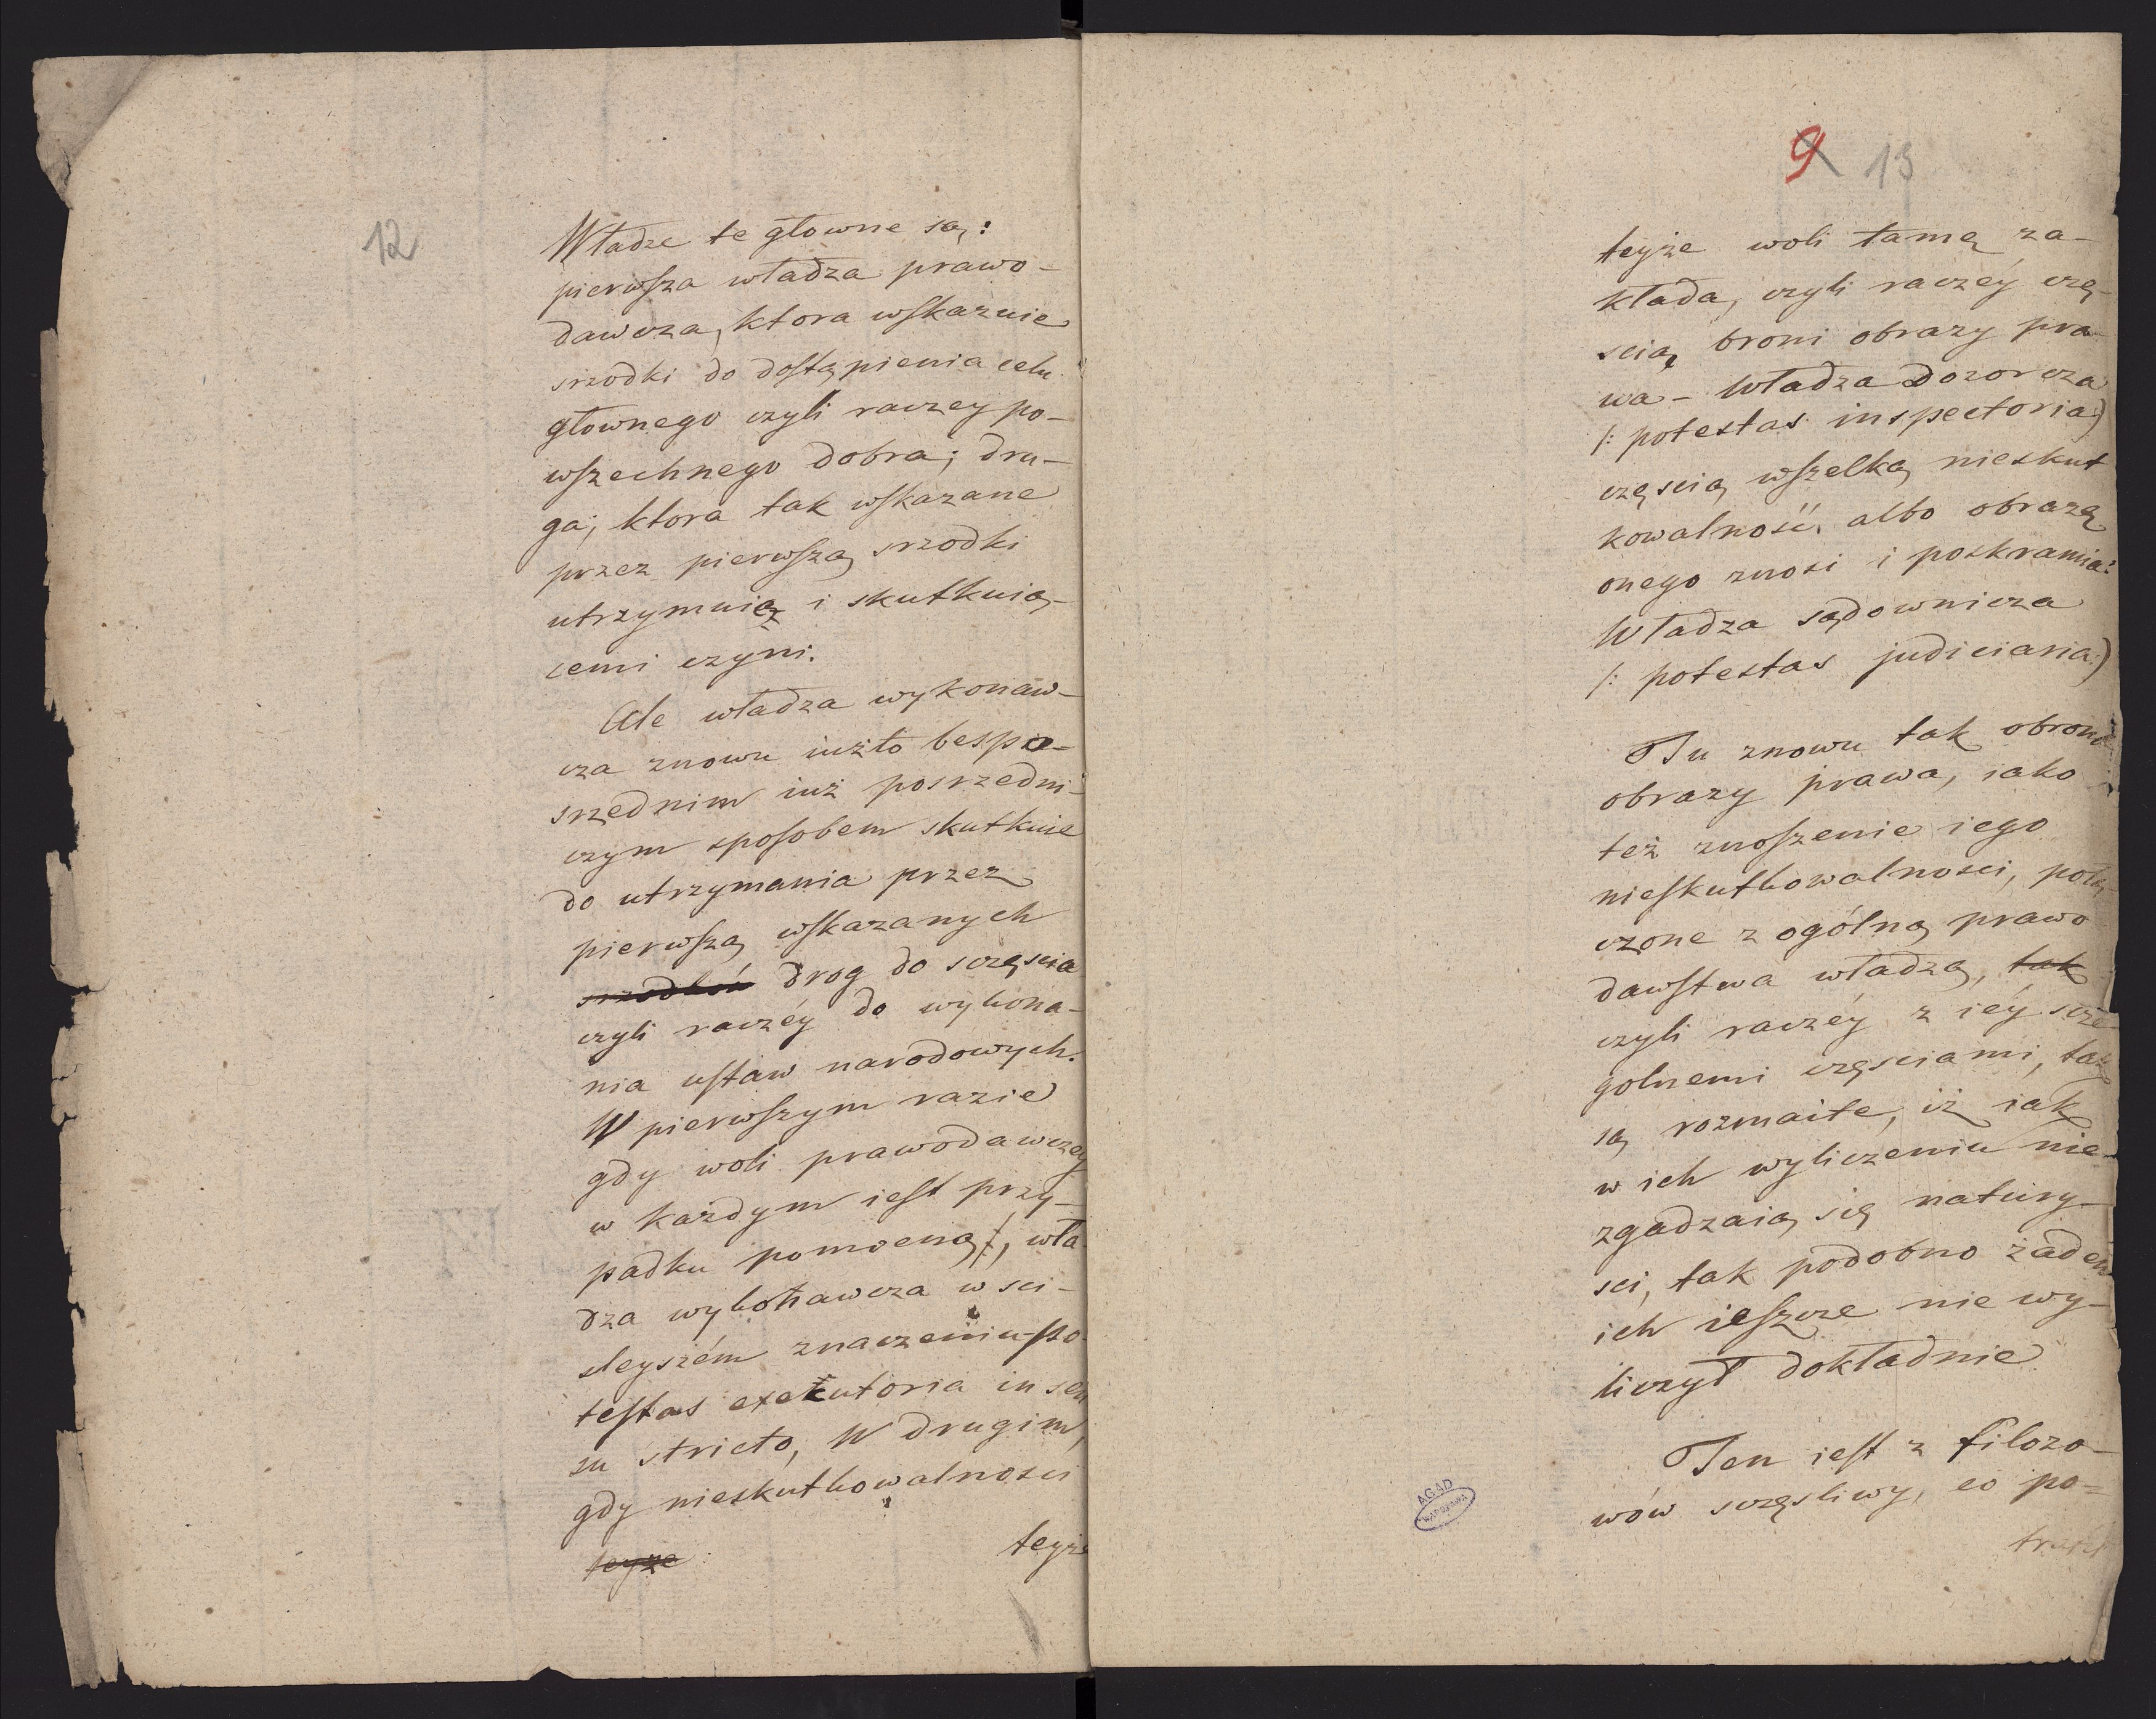 12
Władze te głowne są:
pierwsza władza prawo-
dawcza, ktora wskazuie
srzodki do dostąpienia celu
głownego czyli raczey po-
wszechnego dobra; dru-
ga, ktora tak wskazane
przez pierwszą srzodki
utrzymuię i skutkuią-
cemi czyni.
Ale władza wykonaw-
cza znowu iużto bespo-
srzednim iuż posrzedni-
czym sposobem skutkuie
do utrzymania przez
pierwszą wskazanych
srzodków drog do sczęscia
czyli raczéy do wykona-
nia ustaw narodowych.
W pierwszym razie
gdy woli prawodawczey
w każdym iest przy-
padku pomocną, wła
dza wykonawcza w sci-
sleyszém znaczeniu-po-
testas exekutoria in sen
su stricto, W drugim,
gdy nieskutkowalnosci
teyże teyże
9 13
teyże woli tamę za-
kłada, czyli raczéy czę-
scią broni obrazy pra
wa - Władza Dozorcza
(: potestas inspectoria:)
częscią wszelką nieskut
kowalność, albo obrazę
onego znosi i poskramia:
Władza sądownicza
(: potestas judiciaria:)
Tu znowu tak obrona
obrazy prawa, iako
też znoszenie iego
nieskutkowalnosci, połą-
czone z ogólną prawo
dawstwa władzą, tak
czyli raczéy z iéy scze
golnemi częsciami, tak
są rozmaite, iż iak
w ich wyliczeniu nie-
zgadzaią się natury-
sci, tak podobno żaden
ich ieszcze nie wy-
liczył dokładnie
Ten iest z filozo-
wów sczęsliwy, co po-
AGAD
WARSZAWA